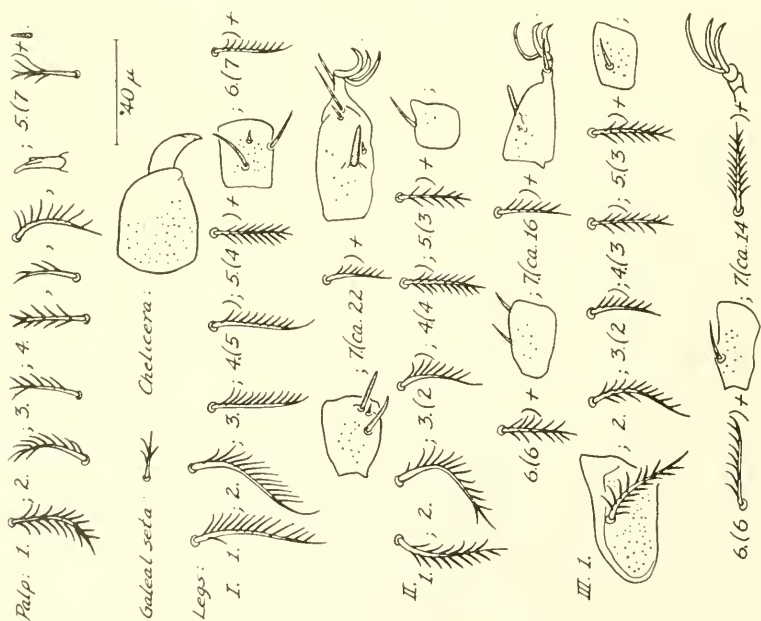 Palp: 1. ; 2. ; 3. ; 4. , , ; 5.(7 )+
Galeal seta: Chelicera: 40 µ
Legs:
I. 1. ; 2. ; 3. ; 4.(5 ); 5.(4 )+ ; 6.(7 )+
; 7.(ca. 22 )+
II. 1. ; 2. ; 3.(2 ); 4.(4 ); 5.(3 )+ ;
6.(6 )+ ; 7.(ca. 16 )+
III. 1. ; 2. ; 3.(2 ); 4.(3 ); 5.(3 )+ ;
6.(6 )+ ; 7.(ca. 14 )+